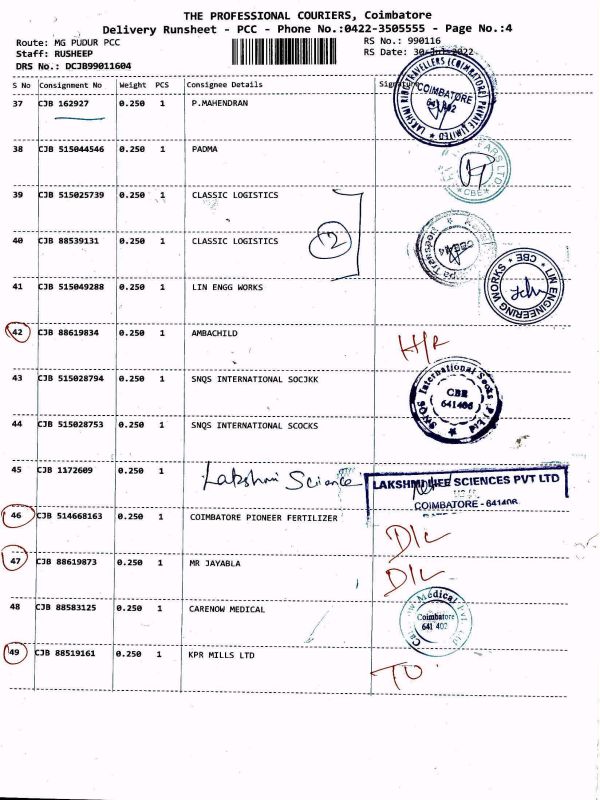 THE PROFESSIONAL COURIERS, Coimbatore
Delivery Runsheet - PCC - Phone No.:0422-3505555 - Page No.:4
Route: MG PUDUR PCC RS No.: 990116
Staff: RUSHEEP RS Date: 30-Jul-2022
DRS No.: DCJB99011604
S No Consignment No Weight PCS Consignee Details Signature
37 CJB 162927 0.250 1 P.MAHENDRAN
COIMBATORE
38 CJB 515044546 0.250 1 PADMA
CBE
39 CJB 515025739 0.250 1 CLASSIC LOGISTICS
12
40 CJB 88539131 0.250 1 CLASSIC LOGISTICS
41 CJB 515049288 0.250 1 LIN ENGG WORKS
LIN ENGINEERING WORKS * CBE *
42 CJB 88619834 0.250 1 AMBACHILD
43 CJB 515028794 0.250 1 SNQS INTERNATIONAL SOCJKK
SNQS International Socks
CBE
641406
44 CJB 515028753 0.250 1 SNQS INTERNATIONAL SCOCKS
45 CJB 1172609 0.250 1 Lakshmi Science
LAKSHMI LIFE SCIENCES PVT LTD
COIMBATORE - 641402
46 CJB 514668163 0.250 1 COIMBATORE PIONEER FERTILIZER
D/L
47 CJB 88619873 0.250 1 MR JAYABLA
D/L
48 CJB 88583125 0.250 1 CARENOW MEDICAL
Medical
Coimbatore
641 402
49 CJB 88519161 0.250 1 KPR MILLS LTD
TO